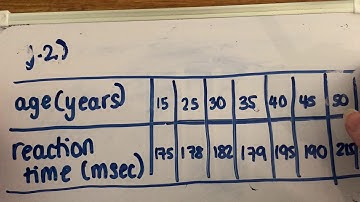 g.2)
age(years) 15 25 30 35 40 45 50
reaction time (msec) 175 178 182 179 195 190